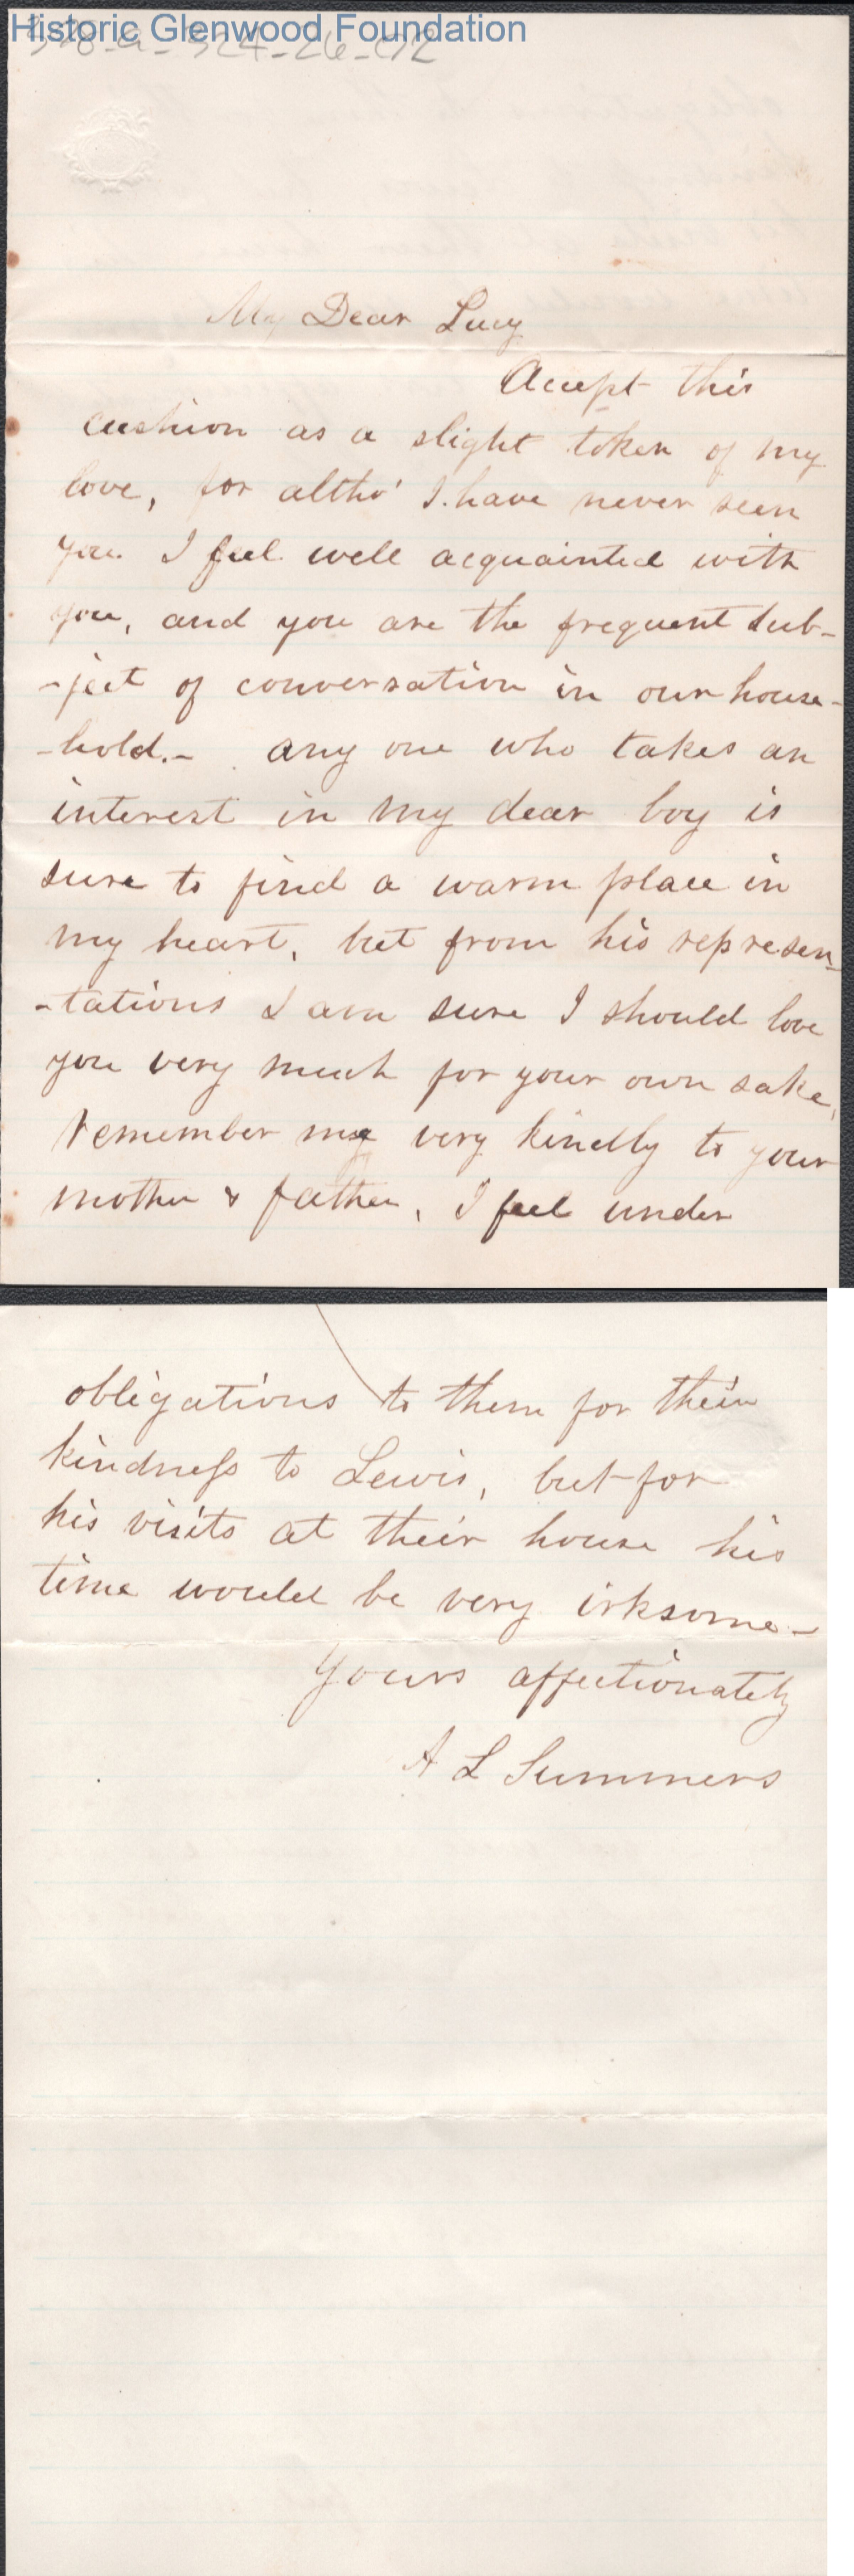 Historic Glenwood Foundation
My Dear Lucy
Accept this
cushion as a slight token of my
love, for altho' I have never seen
you I feel well acquainted with
you, and you are the frequent sub-
-ject of conversation in our house-
-hold.- any one who takes an
interest in my dear boy is
sure to find a warm place in
my heart, but from his represen-
-tations I am sure I should love
you very much for your own sake,
remember me very kindly to your
mother & father, I feel under
obligations to them for their
kindness to Lewis, but for
his visits at their house his
time would be very irksome-
Yours affectionately
A L Summers